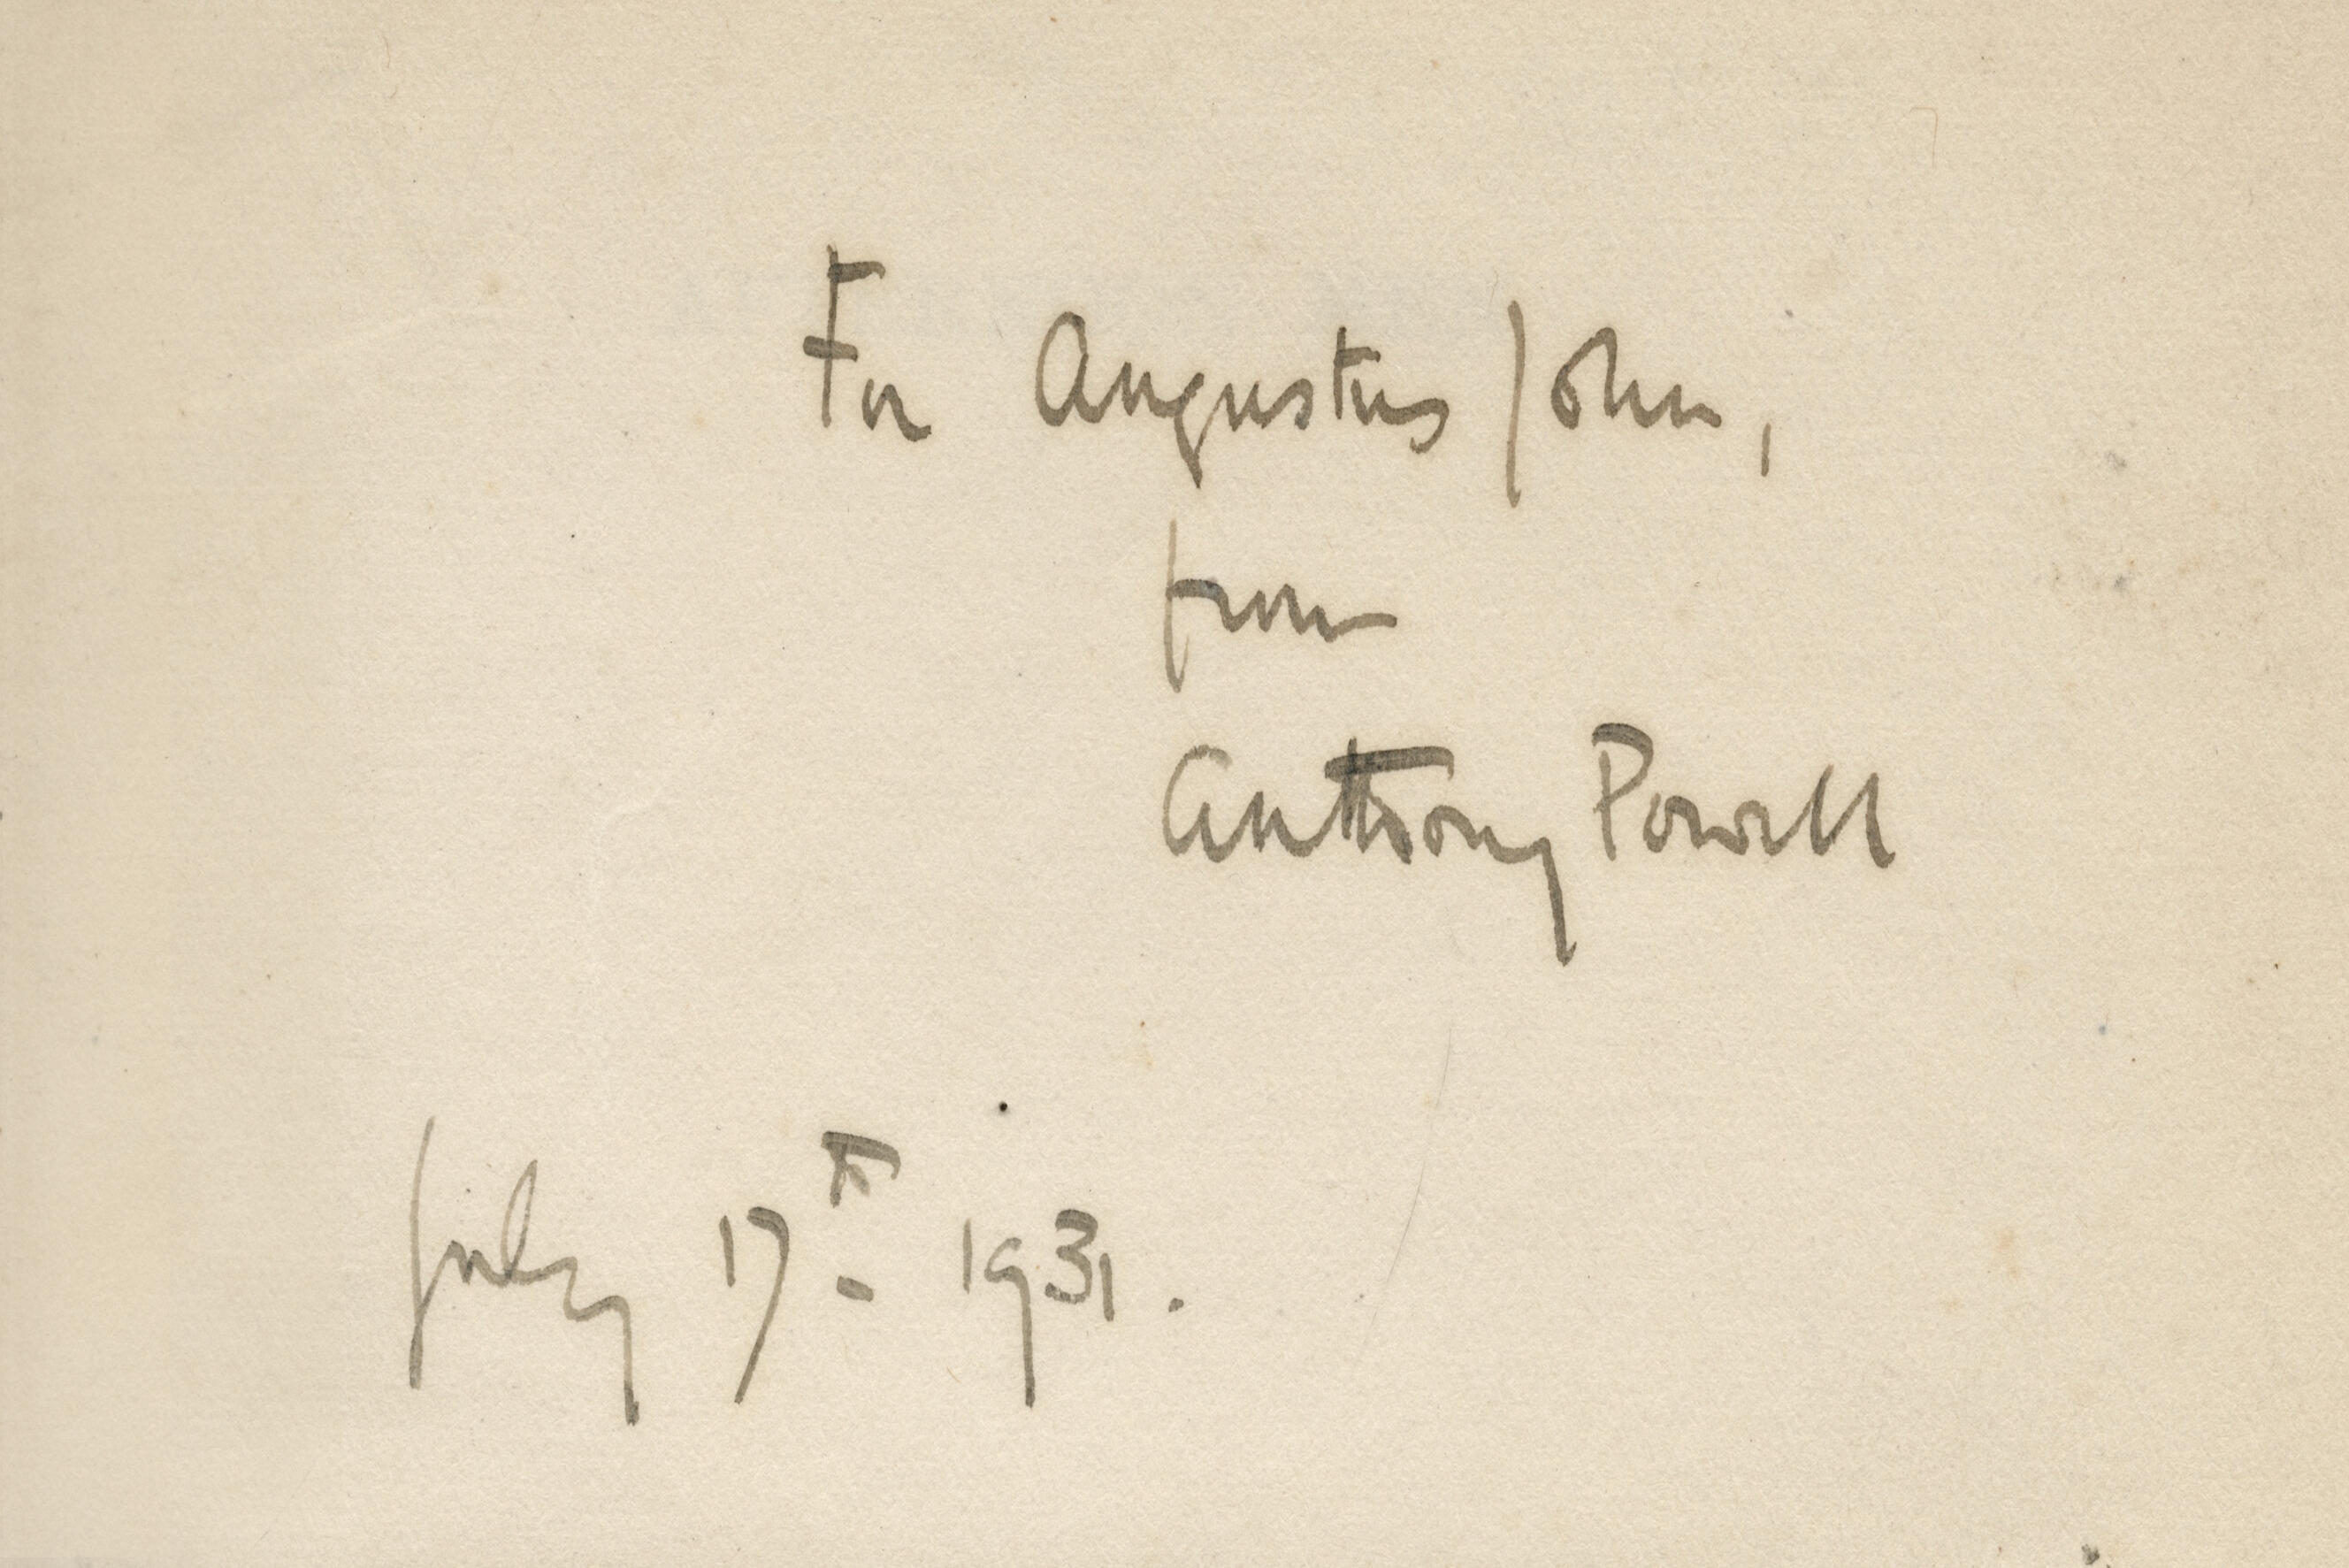 For Augustus John,
from
Anthony Powell
July 17th - 1931.